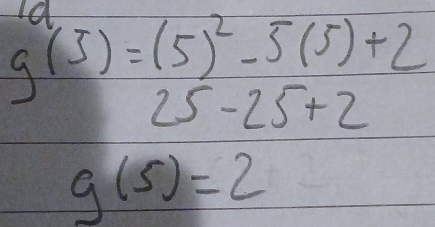 1d
g(5)=(5)²-5(5)+2
25-25+2
g(5)=2